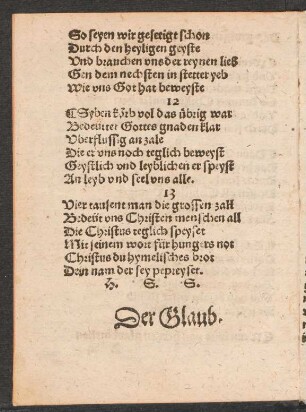 So seyen wir gesetigt schon
Durch den heyligen geyste
Vnd brauchen vns der reynen lieb
Gen dem nechsten in stetter yeb
Wie vns Got hat beweyste
12
¶ Syben körb vol das übrig war
Bedeuttet Gottes gnaden klar
Vberflussig an zale
Die er vns noch teglich beweyst
Geystlich vnd leyblichen er speyst
An leyb vnd seel vns alle.
13
Vier tausent man die grossen zall
Bedeüt vns Christen menschen all
Die Christus teglich speyset
Mit seinem wort für hungers not
Christus du hymelisches brot
Dein nam der sey gepreyset.
H. S. S.
Der Glaub.